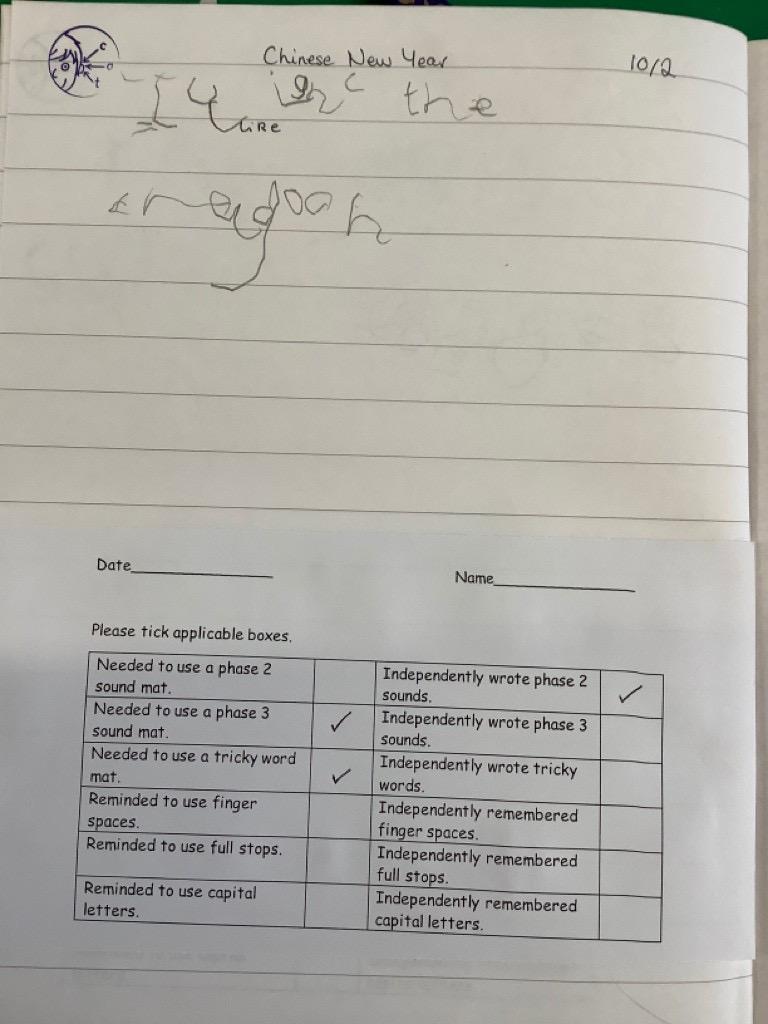 Chinese New Year 10/2
c
o
t
I the
like
Date Name
Please tick applicable boxes.
Needed to use a phase 2 sound mat. Independently wrote phase 2 sounds. ✓
Needed to use a phase 3 sound mat. ✓ Independently wrote phase 3 sounds.
Needed to use a tricky word mat. ✓ Independently wrote tricky words.
Reminded to use finger spaces. Independently remembered finger spaces.
Reminded to use full stops. Independently remembered full stops.
Reminded to use capital letters. Independently remembered capital letters.